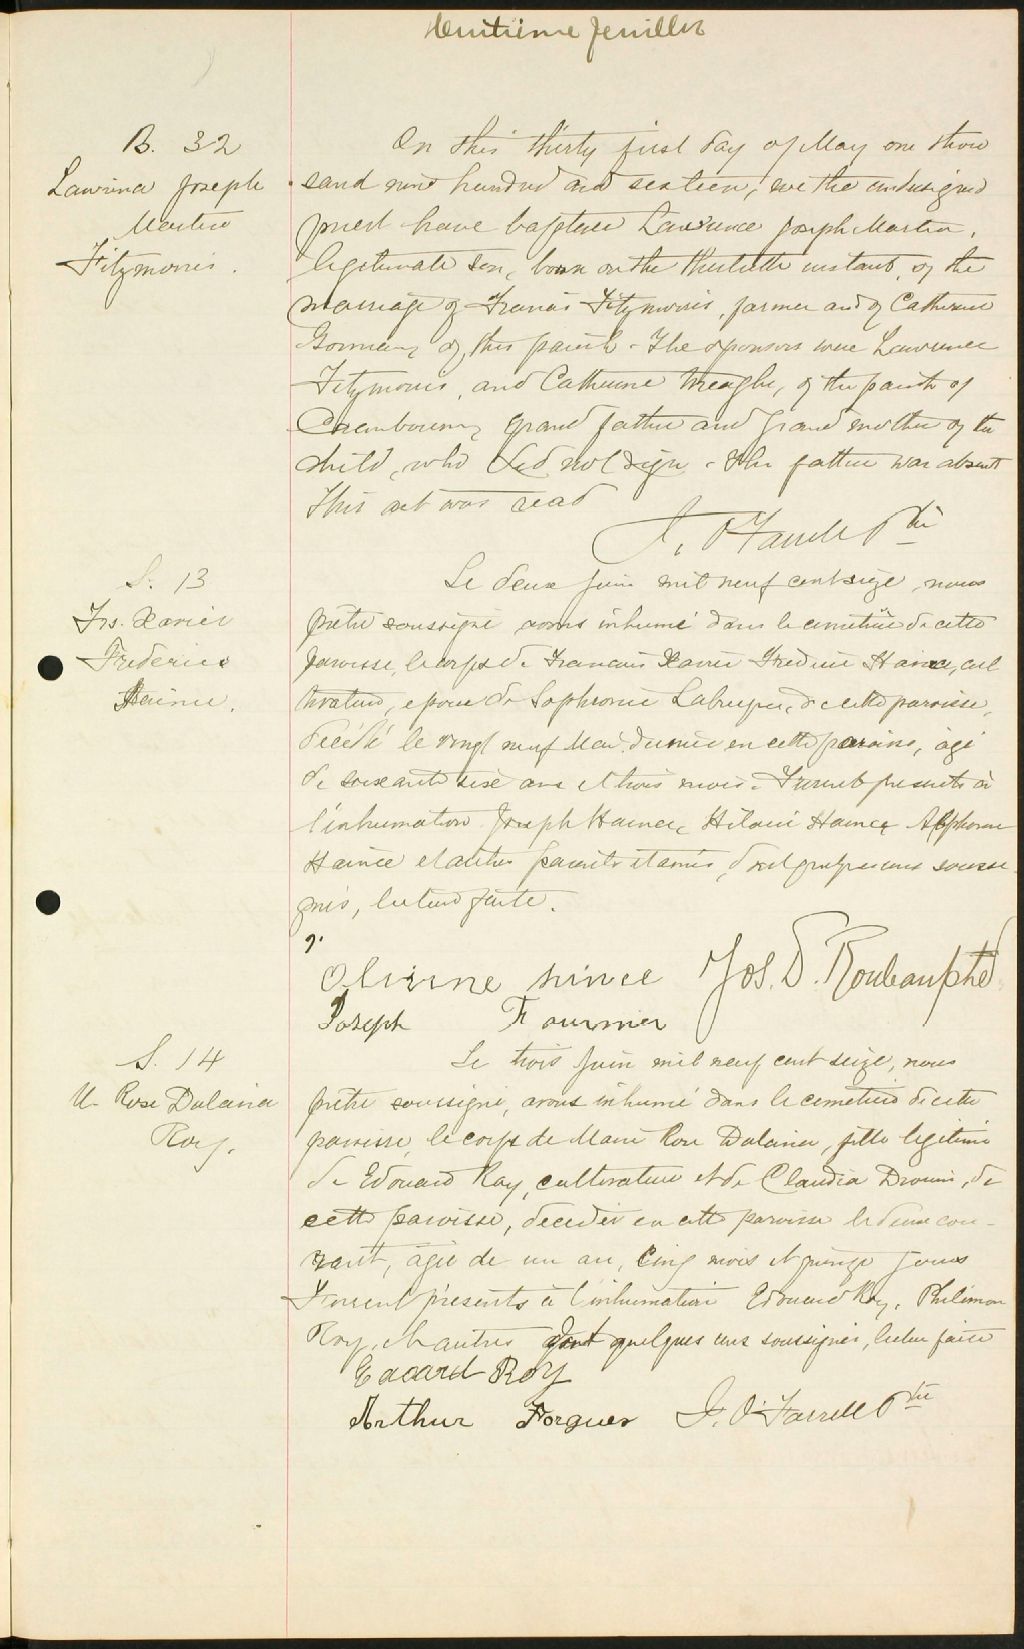 Huitième feuillet
B. 32
Lawrence Joseph
Martin
Fitzmorris.
On this thirty first day of May one thou
sand nine hundred and sixteen, we the undersigned
priest have baptised Lawrence Joseph Martin,
legitimate son, born on the thirtieth instant, of the
marriage of Francis Fitzmorris, farmer and of Catherine
Gorman, of this parish. The sponsors were Lawrence
Fitzmorris, and Catherine Meagher, of the parish of
Cranbourne, grand father and grand mother of the
child, who did not sign. The father was absent
This act was read
J. O'Farrell Ptre
S. 13
Frs. Xavier
Frederic
Hainse.
Le deux juin mil neuf cent seize, nous
prêtre soussigné avons inhumé dans le cimetière de cette
paroisse, le corps de Francois Xavier Frederic Hainse, cul
tivateur, epoux de Sophronie de cette paroisse,
décédé le vingt neuf Mai dernier en cette paroisse, âgé
de soixante seize ans et trois mois. Furent presents à
l'inhumation Joseph Hainse, Hilaire Hainse Alphonse
Hainse et autres parents et amis, dont quelques uns soussi
gnés, lecture faite.
Joseph Fournier Jos. D. Ptre
S. 14
M. Rose Dalaina
Roy.
Le trois Juin mil neuf cent seize, nous
prêtre soussigné, avons inhumé dans le cimetière de cette
paroisse, le corps de Marie Rose Dalaina, fille legitime
de Edouard Roy, cultivateur et de Claudia Drouin, de
cette paroisse, decedée en cette paroisse le deux cou-
rant, âgée de un an, cinq mois et quinze jours
Furent présents à l'inhumation Edouard Roy, Philémon
Roy, et autres dont quelques uns soussignés, lecture faite
Edouard Roy
Arthur Forgues J. O'Farrell Ptre